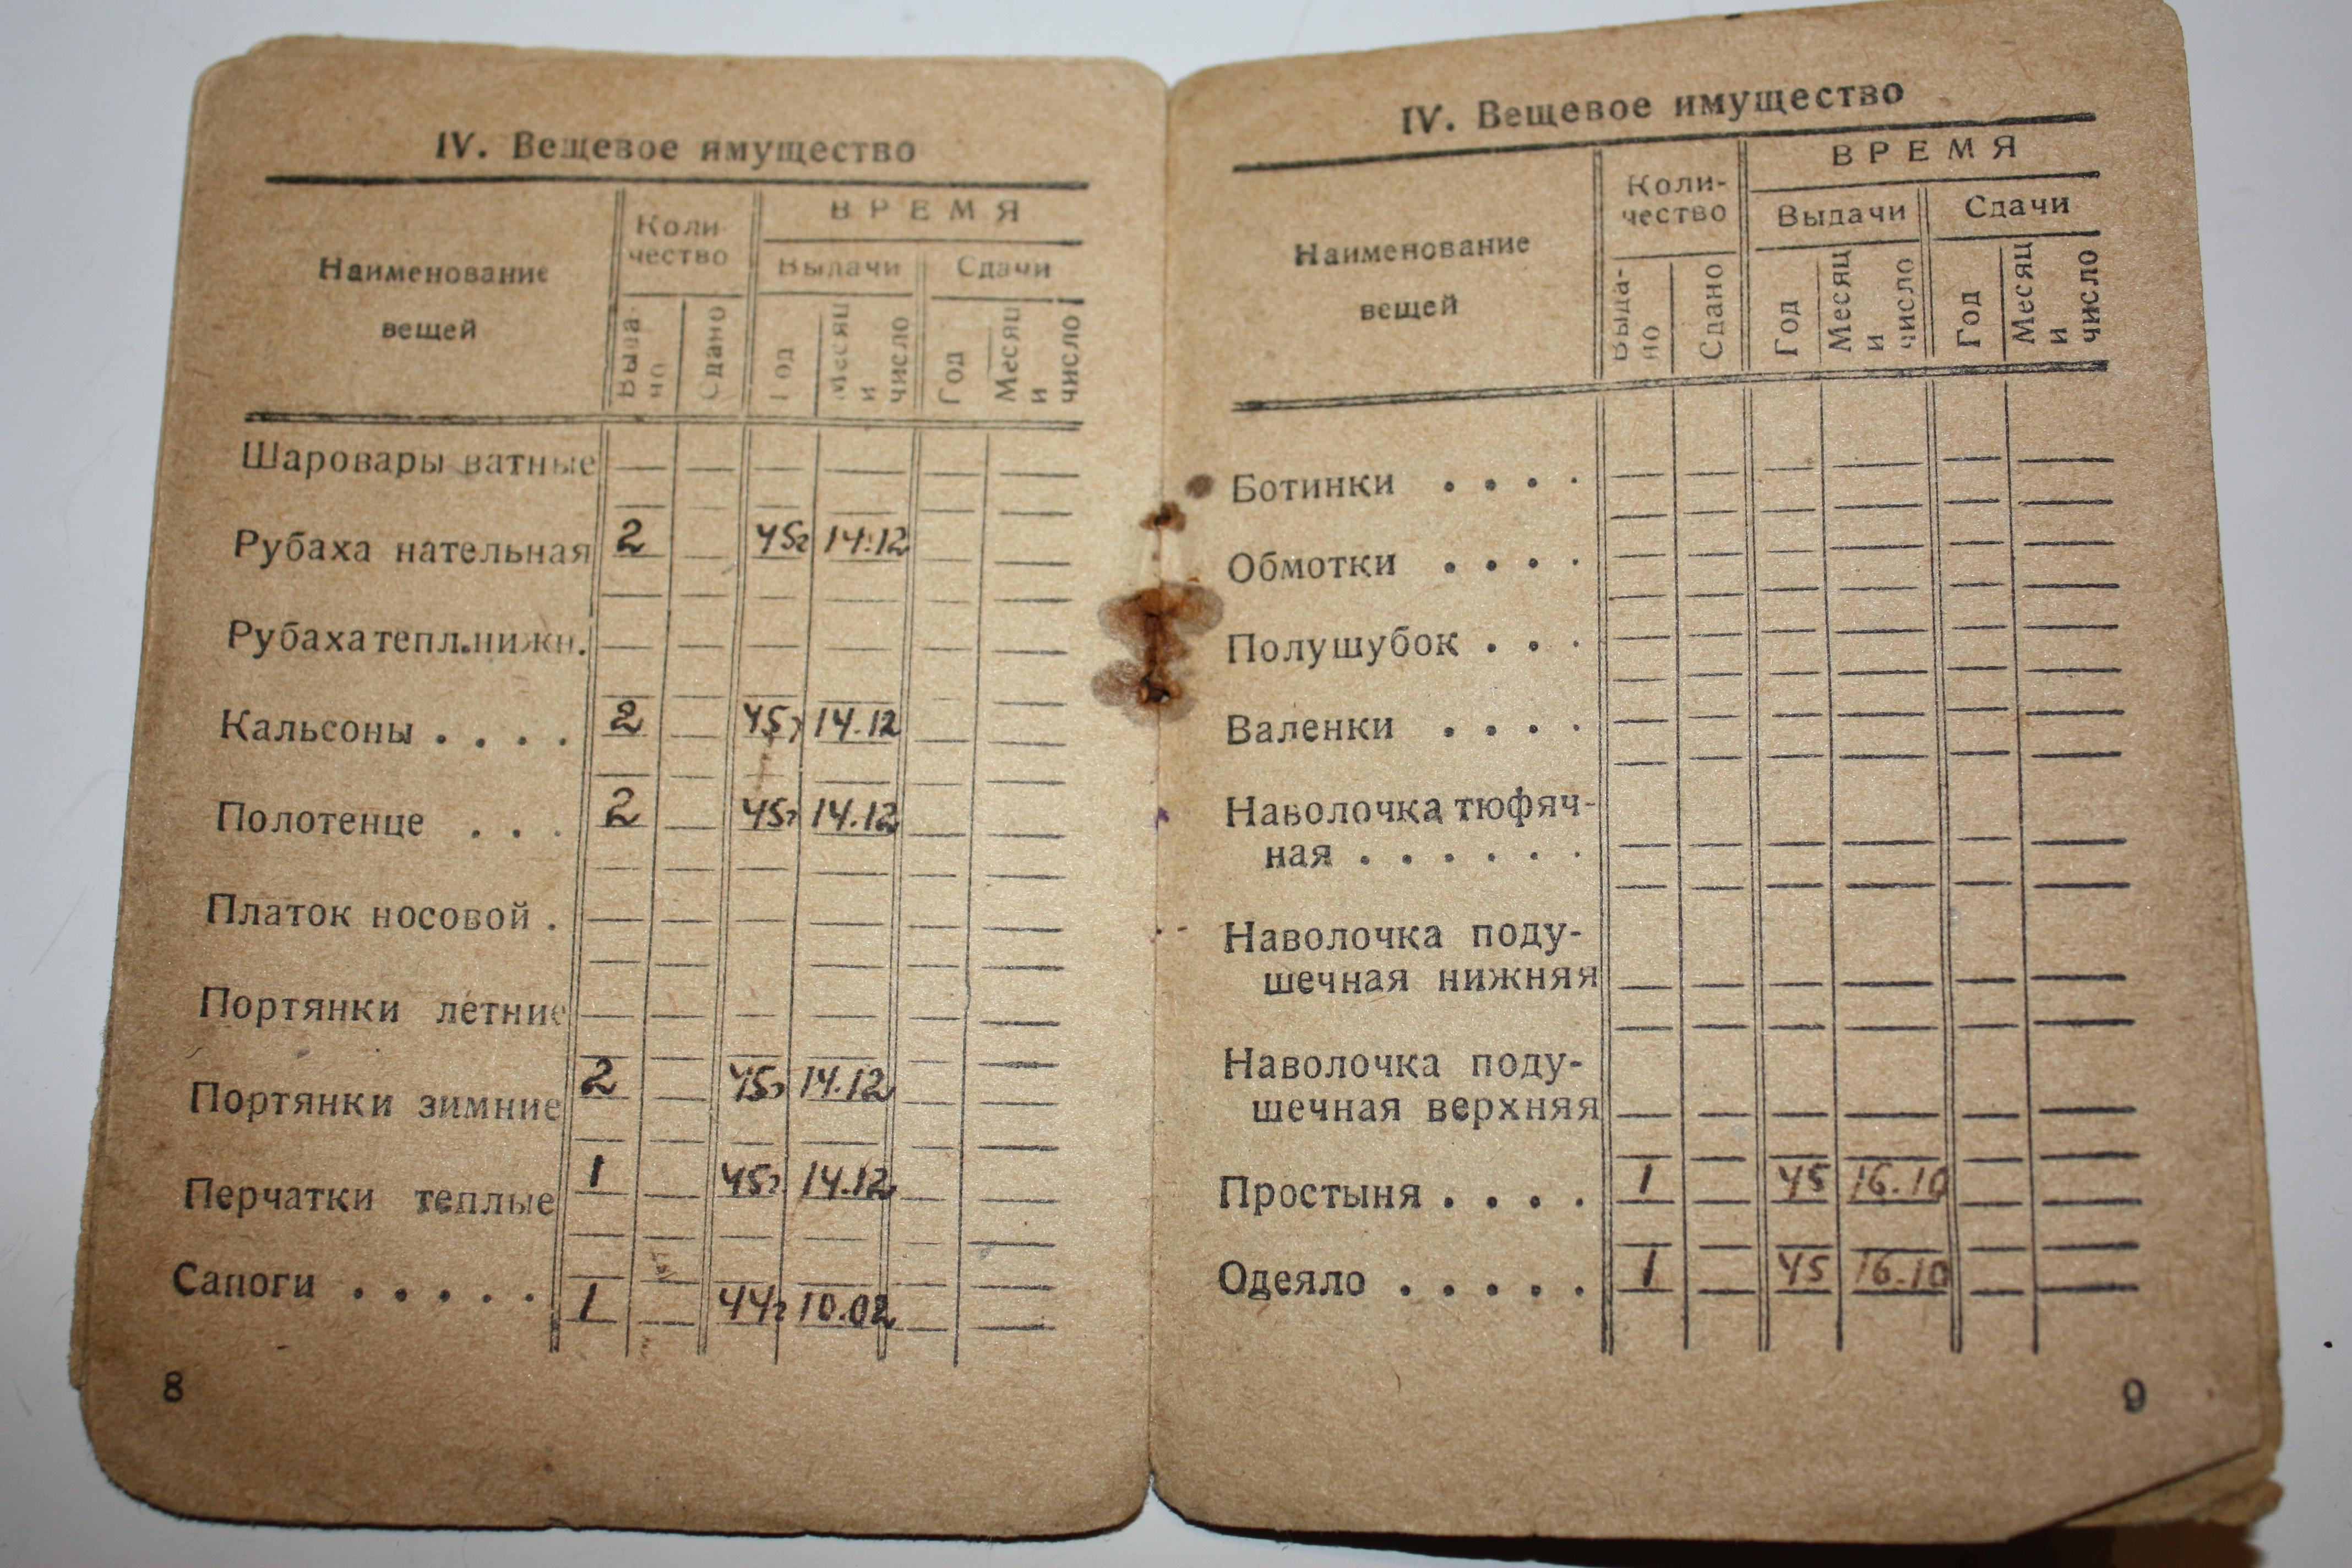 IV. Вещевое имущество
Наименование вещей
Коли-
чество
ВРЕМЯ
Выдачи
Сдачи
Выда-
но
Сдано
Год
Месяц
и
число
Год
Месяц
и
число
Шаровары ватные
Рубаха нательная 2 45г 14.12
Рубаха тепл. нижн.
Кальсоны . . . . 2 45г 14.12
Полотенце . . . 2 45г 14.12
Платок носовой .
Портянки летние
Портянки зимние 2 45г 14.12
Перчатки теплые 1 45г 14.12
Сапоги . . . . . 1 44г 10.02
8
IV. Вещевое имущество
Наименование
вещей
Коли-
чество
ВРЕМЯ
Выдачи
Сдачи
Выда-
но
Сдано
Год
Месяц
и
число
Год
Месяц
и
число
Ботинки . . . .
Обмотки . . . .
Полушубок . . .
Валенки . . . .
Наволочка тюфяч-
ная . . . . . .
Наволочка поду-
шечная нижняя
Наволочка поду-
шечная верхняя
Простыня . . . . 1 45 16.10
Одеяло . . . . . 1 45 16.10
9